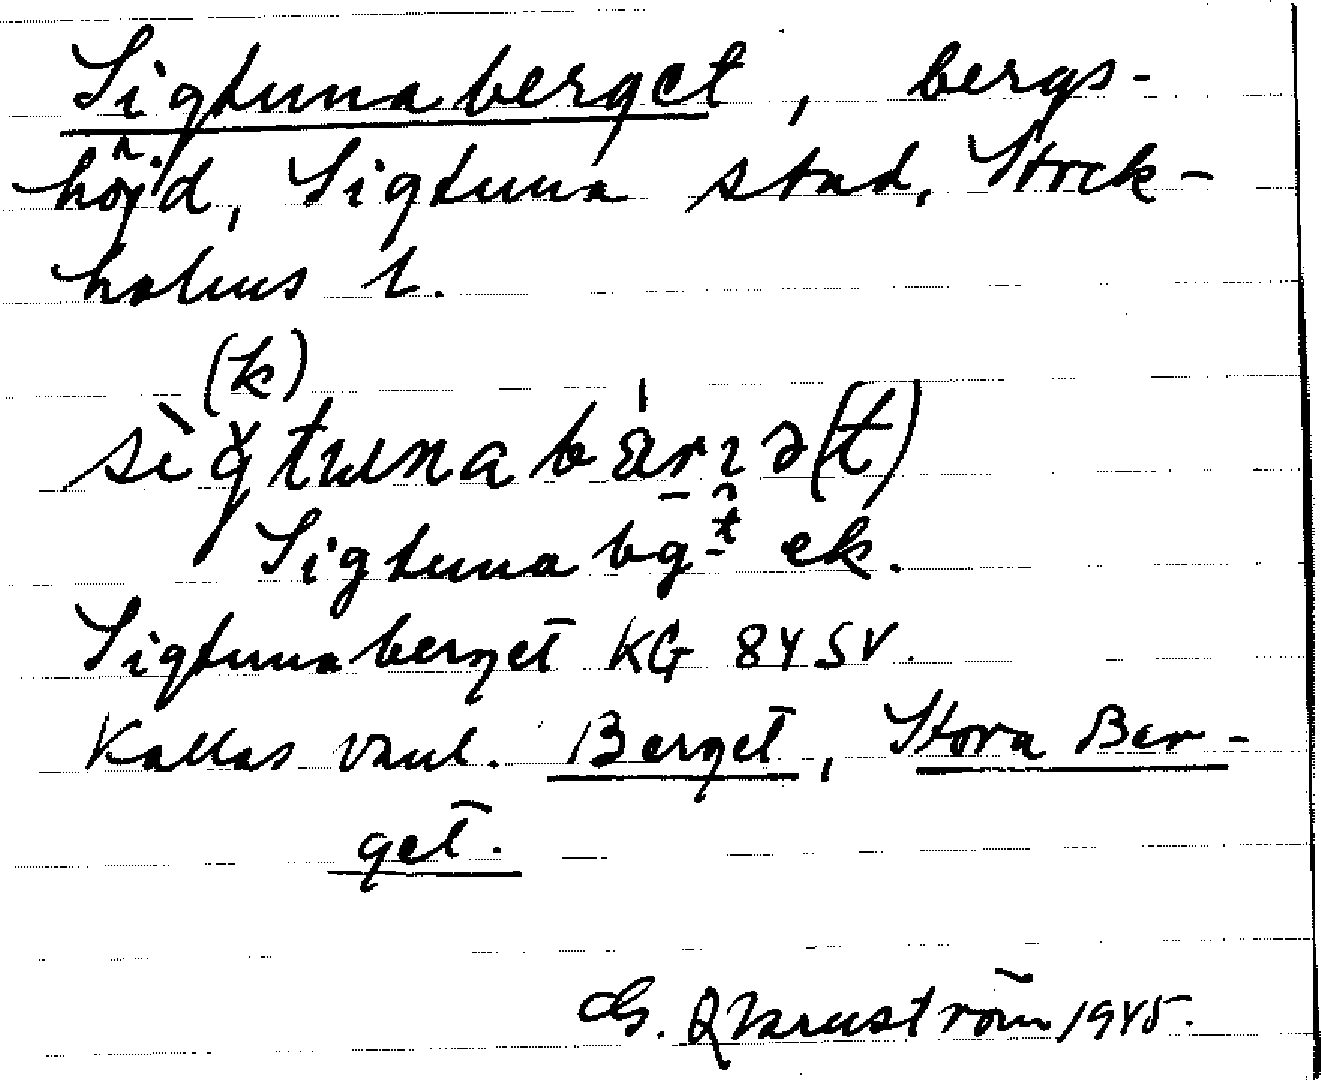 Sigtunaberget, bergs-
höjd, Sigtuna stad, Stock-
holms l.
(k)
sìgtunabä́rıə(t)
Sigtunabgt ek.
Sigtunaberget KG 84 SV.
Kallas vanl. Berget, Stora Ber-
get.
G. Qvarnström 1945.